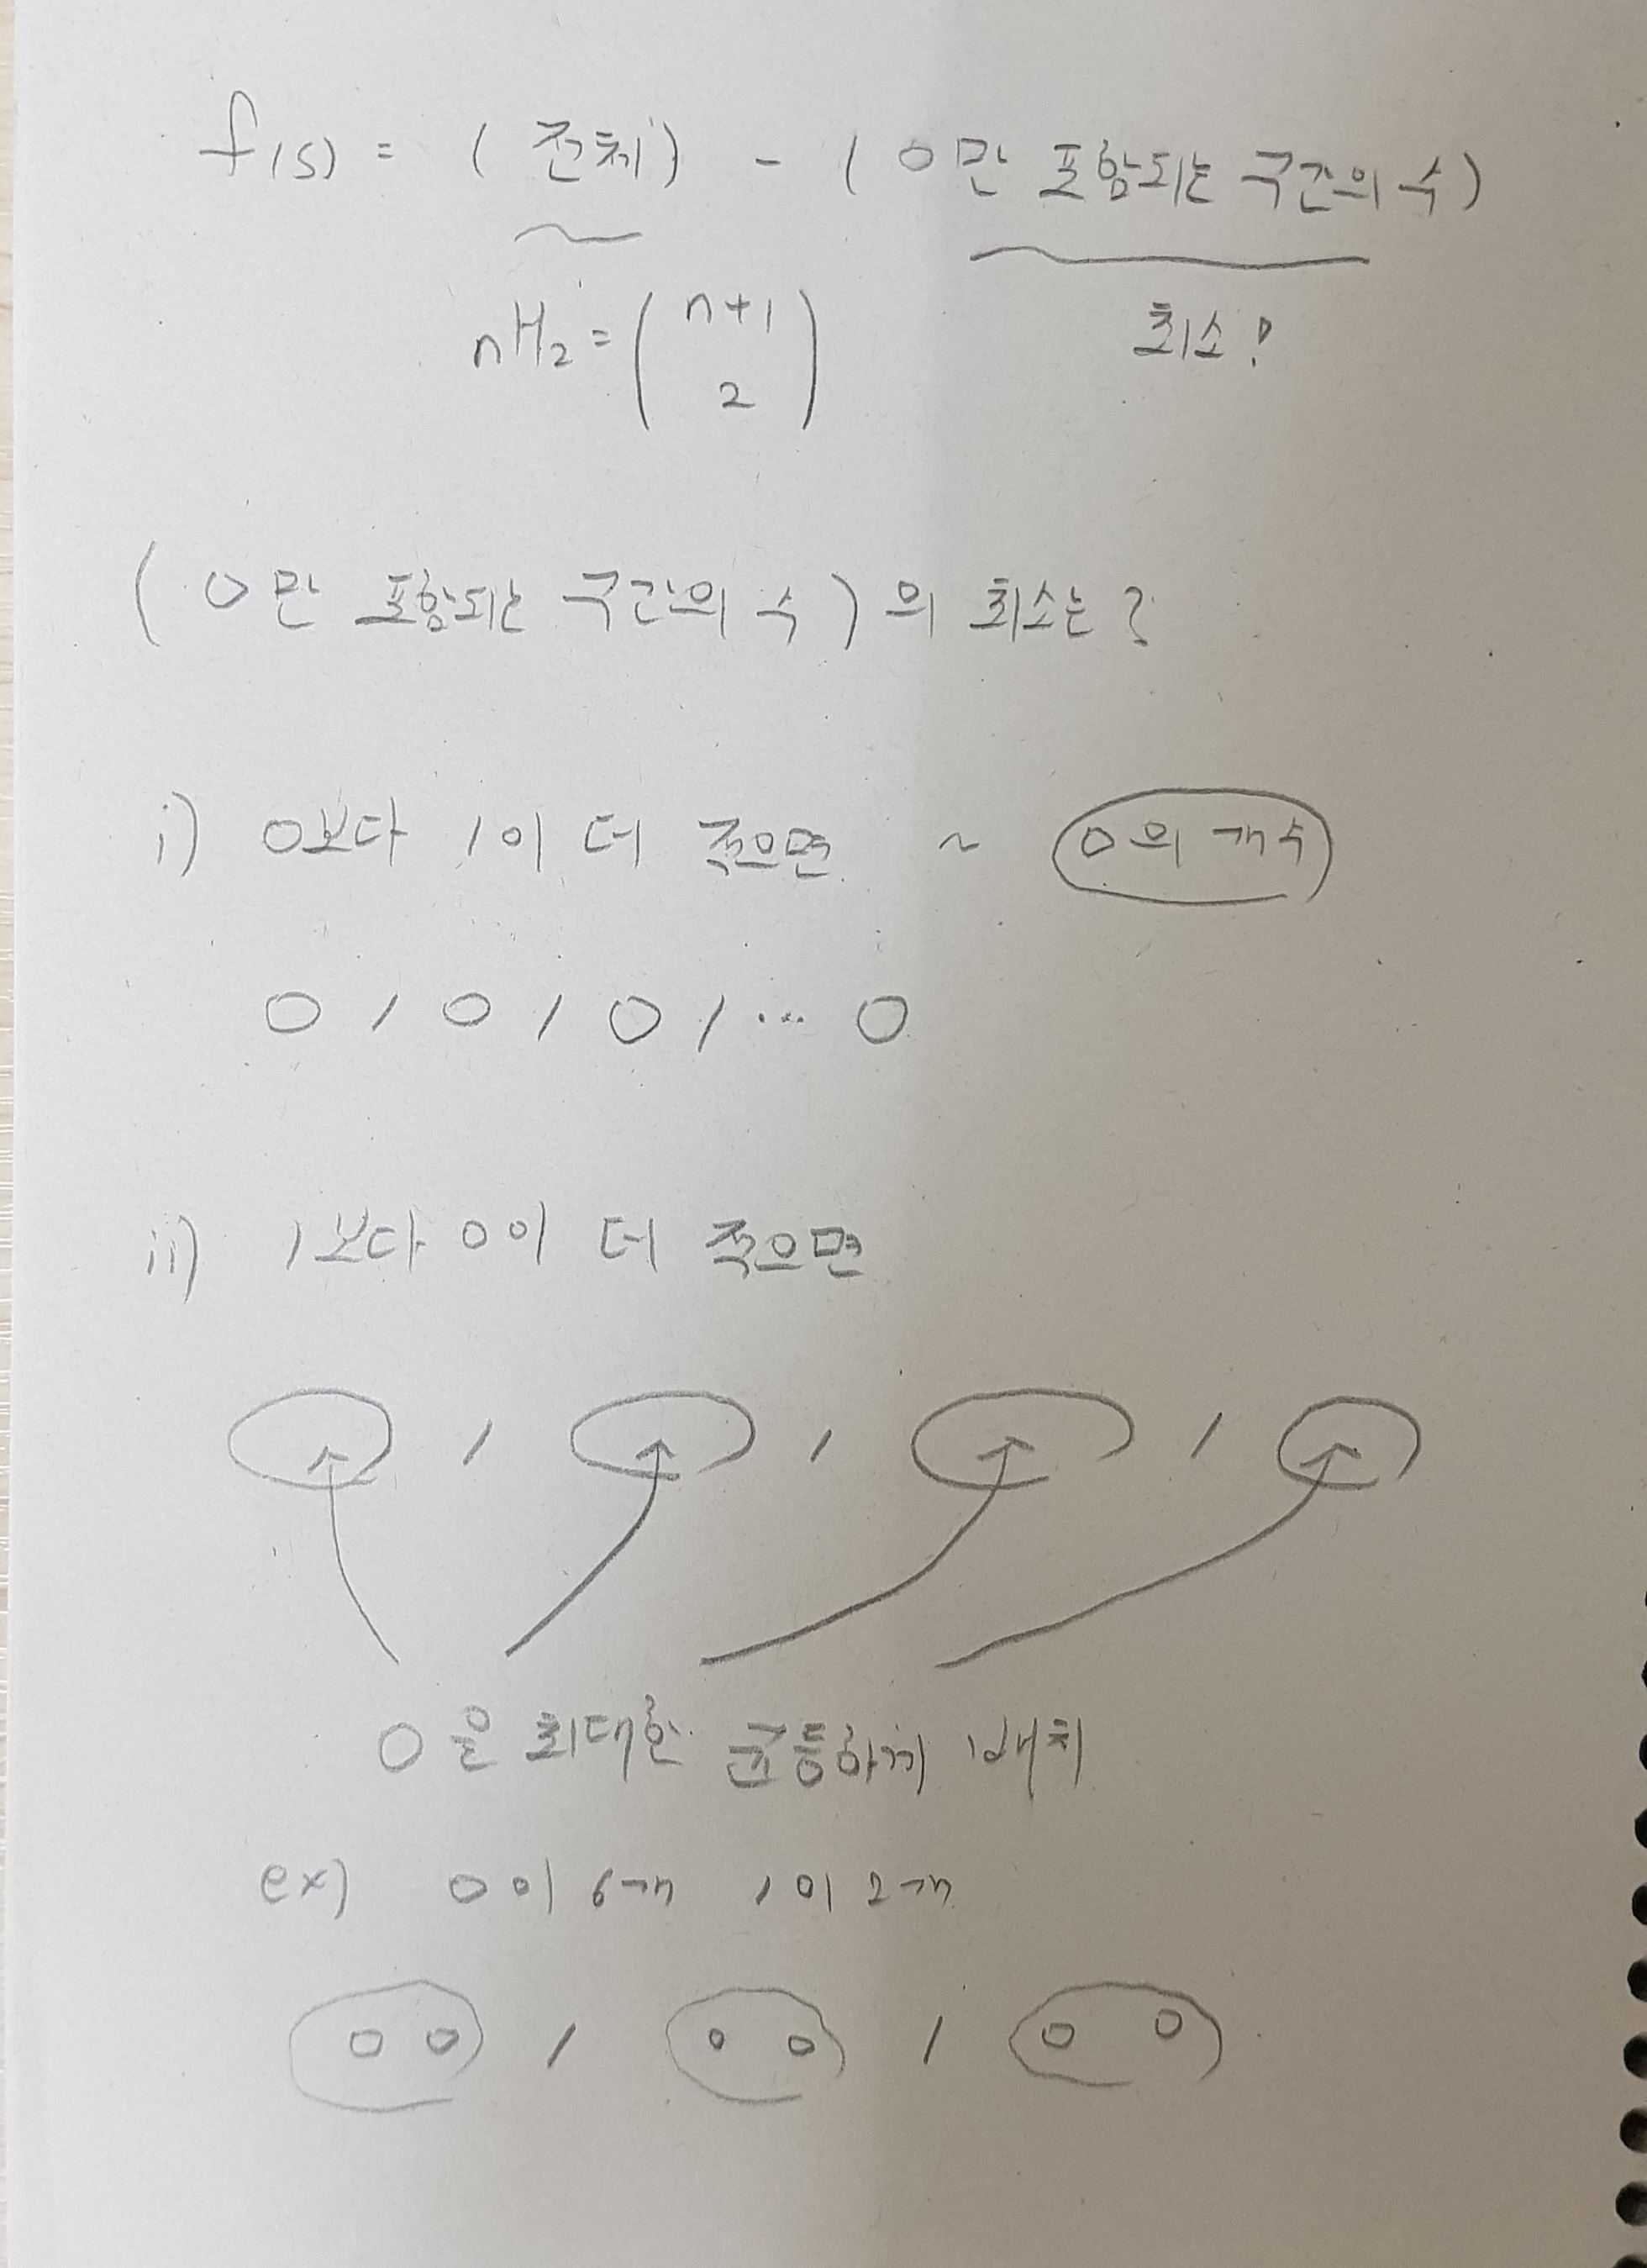 f(s) = (전체) - (0만 포함되는 구간의 수)
nH2 = (n+1 2) 최소!
(0만 포함되는 구간의 수)의 최소는?
i) 0보다 1이 더 적으면 ~ 0의 개수
0 1 0 1 0 1 ... 0
ii) 1보다 0이 더 적으면
1 1 1
0을 최대한 균등하게 배치
ex) 0이 6개 1이 2개
0 0 1 0 0 1 0 0